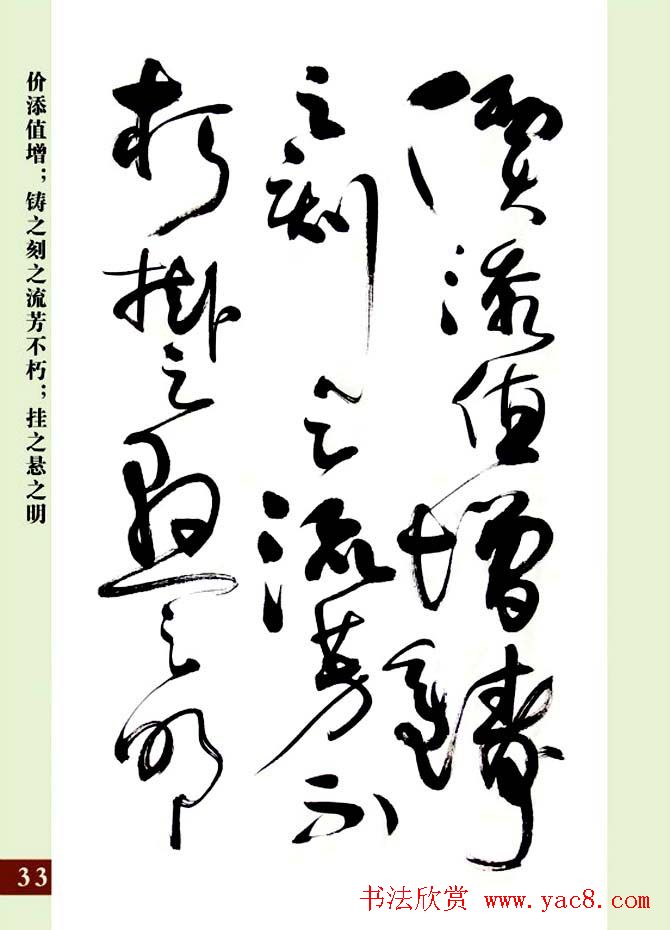 價添值增鑄
之刻之流芳不
朽掛之懸之明
价添值增；铸之刻之流芳不朽；挂之悬之明
33
书法欣赏 www.yac8.com